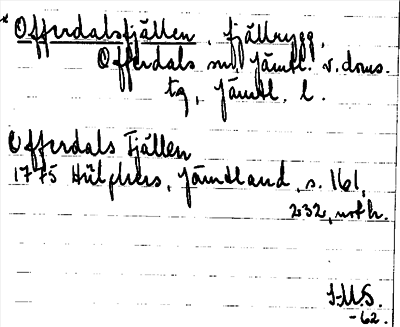 Offerdalsfjällen, fjällrygg,
Offerdals sn, Jämtl. v. doms.
tg, Jämtl. l.
Offerdals Fjällen
1775 Hülphers, Jämtland, s. 161,
232, not h.
-62.